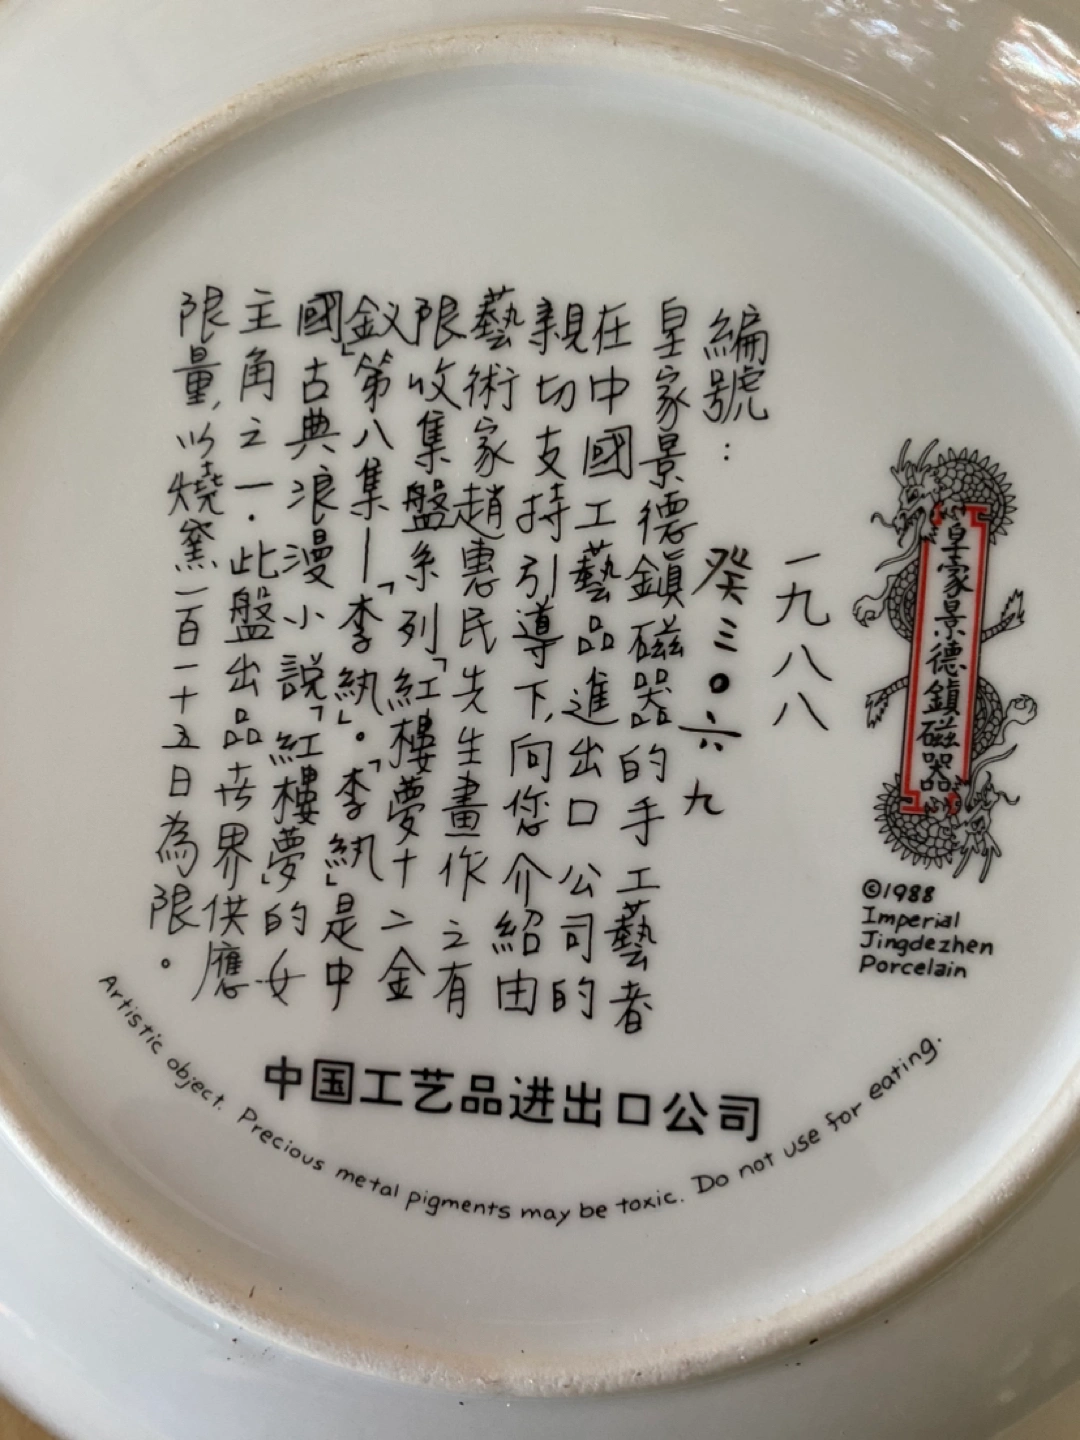 皇家景德鎮磁器
©1988
Imperial
Jingdezhen
Porcelain
一九八八
編號：癸三〇六九
皇家景德鎮磁器的手工藝者
在中國工藝品進出口公司的
親切支持引導下,向您介紹由
藝術家趙惠民先生畫作之有
限收集盤系列「紅樓夢十二金
釵」第八集—「李紈」。「李紈」是中
國古典浪漫小說「紅樓夢」的女
主角之一.此盤出品世界供應
限量,以燒窯一百一十五日為限。
中国工艺品进出口公司
Artistic object. Precious metal pigments may be toxic. Do not use for eating.